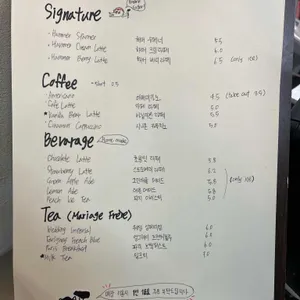 Signature
- Hammer Spanner 5.5
- Hammer Cream Latte 6.0
- Hammer Berry Latte 6.5 (only ice)
Coffee - shot 0.5
- Americano 아메리카노 4.5 (take out 3.5)
- Cafe Latte 카페 라떼 5.0
* Vanilla Bean Latte 바닐라빈 라떼 5.5
- Cinnamon Cappuccino 시나몬 카푸치노
Bevarage (Home made)
Chocolate Latte 초콜릿 라떼 5.8
Strawberry Latte 스트로베리 라떼 6.2
Green Apple Ade 5.8 (only ice)
Lemon Ade 레몬 에이드 5.8
Peach Ice Tea 피치 아이스티 5.0
Tea (Mariage Frère)
Wedding Imperial 웨딩 임페리얼 6.0
Earlgrey French Blue 6.0
Paris Breakfast 6.0
* Milk Tea 밀크티